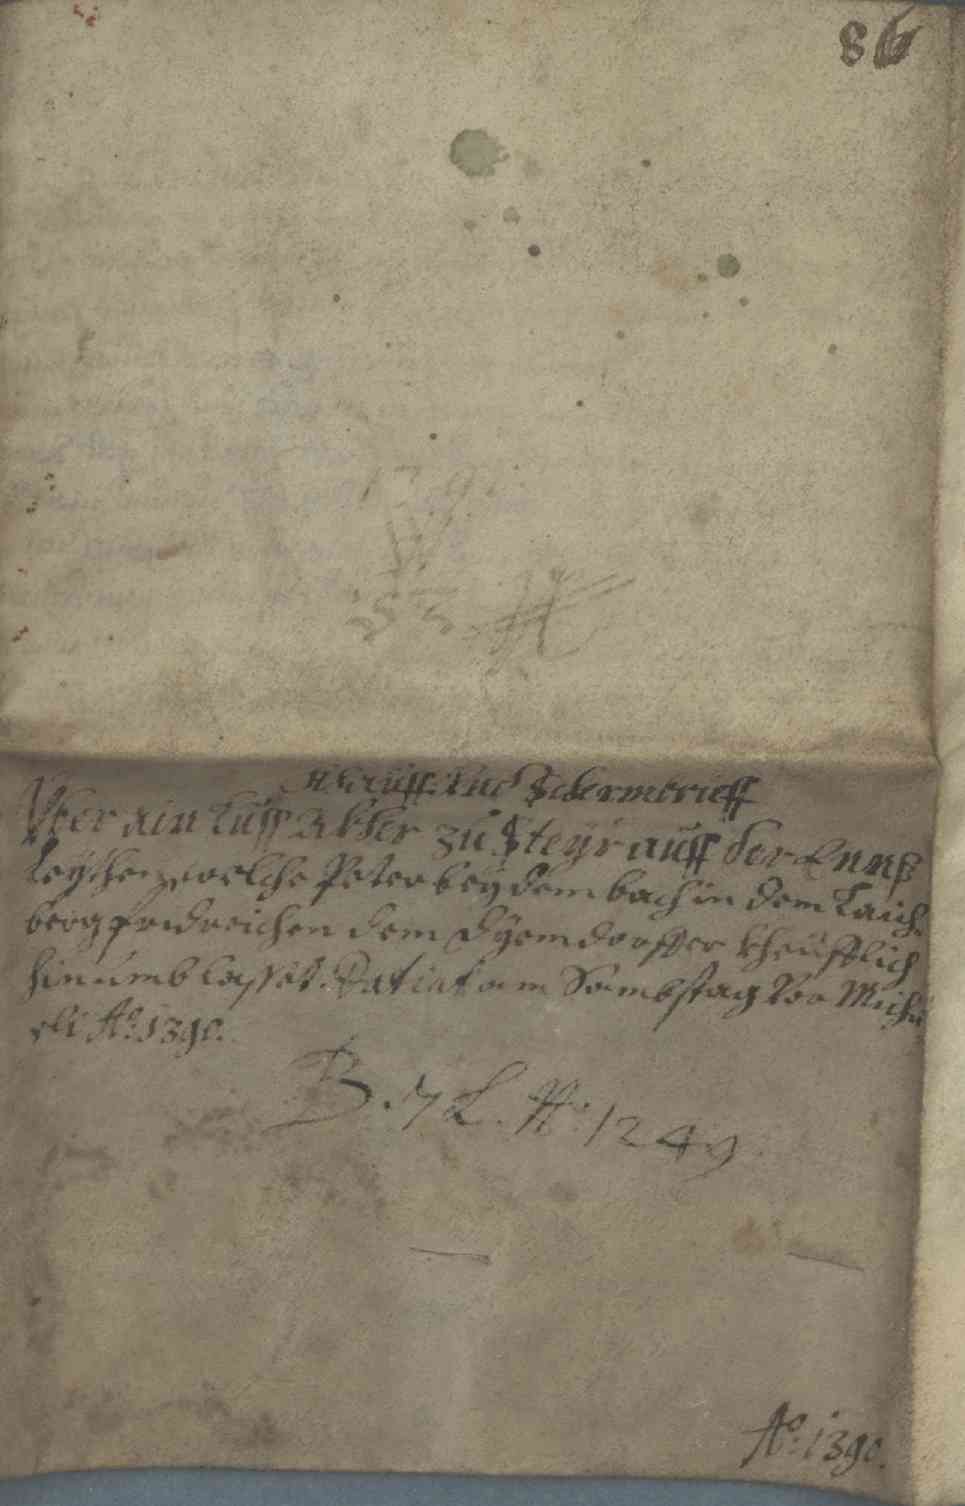 86
1390.
Khauff: Und Schermbrieff
Uber ain Luss Akher zu Steyr auff der Ennß
Leythen, welche Peter bey dem bach in dem Raich
berg fridreichen dem Dyemdorffer kheüfflich
hinumb lasset. Datirt am Sambstag vor Micha
eli Ao: 1390.
B. 7 L. No: 1249
Ao: 1390.